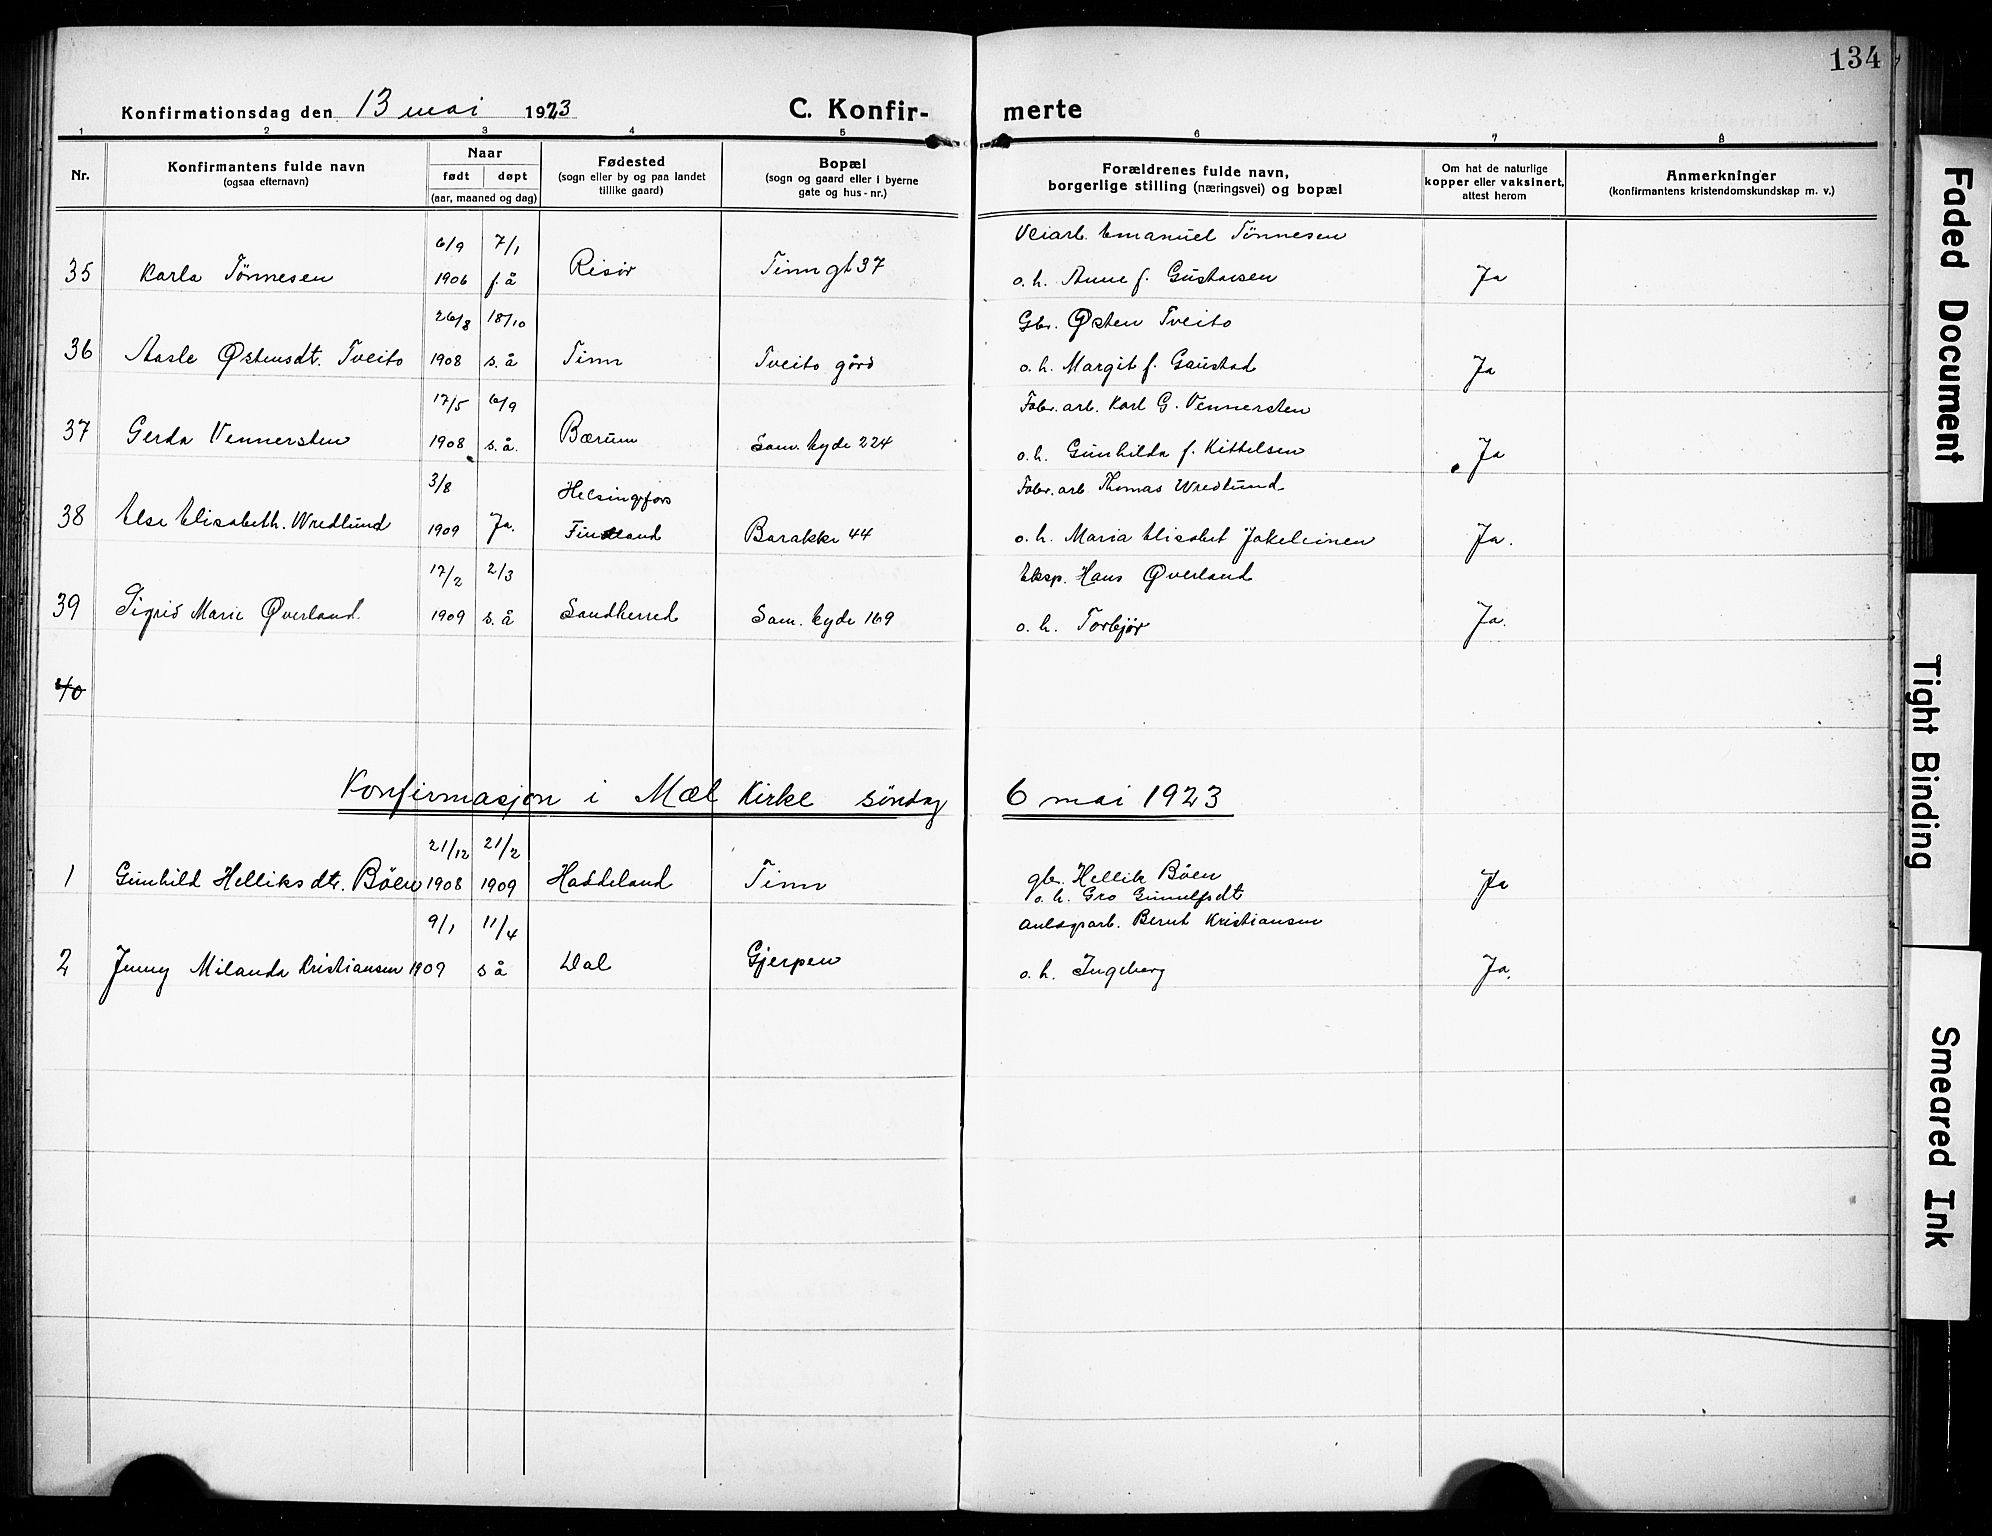 134
Konfirmationsdag den 13 mai 1923
C. Konfir-
merte
1 2 3 4 5 6 7 8
Nr.
Konfirmantens fulde navn
(ogsaa efternavn)
Naar
født døpt
(aar, maaned og dag)
Fødested
(sogn eller by og paa landet
tillike gaard)
Bopæl
(sogn og gaard eller i byerne
gate og hus-nr.)
Forældrenes fulde navn,
borgerlige stilling (næringsvei) og bopæl
Om hat de naturlige
kopper eller vaksinert,
attest herom
Anmerkninger
(konfirmantens kristendomskundskap m. v.)
6/9 7/1 Veiarb. Emanuel Tönnesen
35 Karla Tönnesen 1906 f. å Risör Tinn gt 37 o. h. Anne f. Gustavsen Ja
26/8 18/10 Gbr. Østen Tveito
36 Aasle Østensdt. Tveito 1908 s. å Tinn Tveito gård o. h. Margit f. Gaustad Ja
17/5 6/9 Fabr. arb. Karl G. Vennersten
37 Gerda Vennersten 1908 s. å. Bærum Sam. eyde 224 o. h. Gunhilda f. Kittelsen Ja
3/8 Helsingfors Fabr. arb. Thomas Wredlund
38 Else Elisabeth. Wredlund 1909 Ja. Finland Barakke 44 o. h. Maria Elisabet Jakeleinen Ja.
17/2 2/3 Eksp. Hans Øverland
39 Sigrid Marie Øverland. 1909 s. å Sandherred Sam. Eyde 169 o. h. Torbjör Ja.
40
Konfirmasjon i Mæl Kirke söndag 6 mai 1923
21/12 21/2
1 Gunhild Helliksdtr. Böen 1908 1909 Haddeland Tinn gbr. Hellik Böen Ja
o. h. Gro Gunnulfsdt
9/1 11/4 Anlegsarb. Bernt Kristiansen
2 Jenny Milanda Kristiansen 1909 s å Dal Gjerpen o. h. Ingeborg Ja.
Faded Document
Tight Binding
Smeared Ink